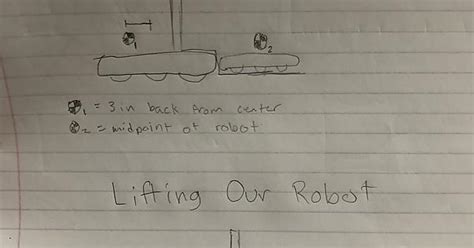 1
2
1 = 3 in back from center
2 = midpoint of robot
Lifting Our Robot